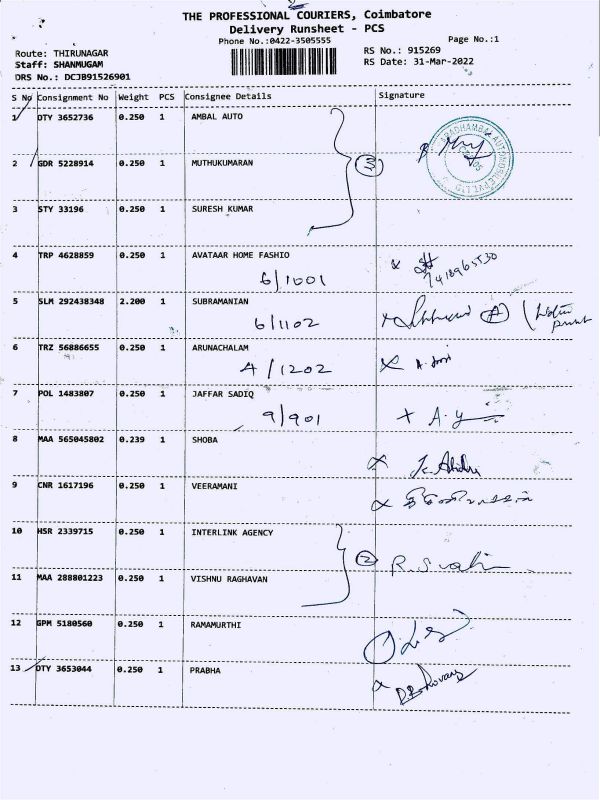 THE PROFESSIONAL COURIERS, Coimbatore
Delivery Runsheet - PCS
Phone No.:0422-3505555
Page No.:1
Route: THIRUNAGAR
RS No.: 915269
Staff: SHANMUGAM
RS Date: 31-Mar-2022
DRS No.: DCJ891526901
S No Consignment No Weight PCS Consignee Details Signature
1 DTY 3652736 0.250 1 AMBAL AUTO
2 GDR 5228914 0.250 1 MUTHUKUMARAN 3
3 STY 33196 0.250 1 SURESH KUMAR
4 TRP 4628859 0.250 1 AVATAAR HOME FASHIO
6/1001 7418965530
5 SLM 292438348 2.200 1 SUBRAMANIAN
6/1102
6 TRZ 56886655 0.250 1 ARUNACHALAM
4/1202
7 POL 1483807 0.250 1 JAFFAR SADIQ
9/901 A.y
8 MAA 565045802 0.239 1 SHOBA
9 CNR 1617196 0.250 1 VEERAMANI
10 HSR 2339715 0.250 1 INTERLINK AGENCY
2
11 MAA 288801223 0.250 1 VISHNU RAGHAVAN
12 GPM 5180560 0.250 1 RAMAMURTHI
13 DTY 3653044 0.250 1 PRABHA